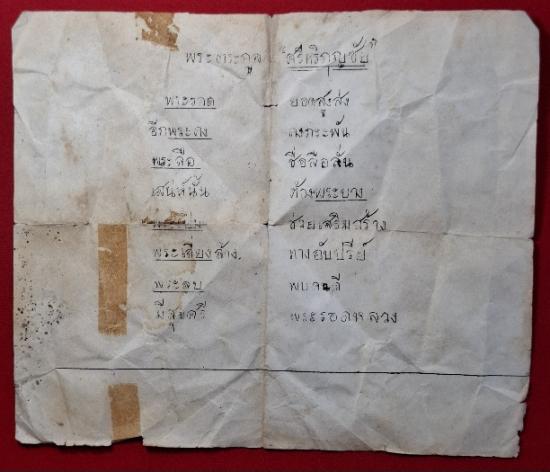 พระตระกูล "ศรีหริภุญชัย"
พระรอด ยอดสูงส่ง
อีกพระคง คงกระพัน
พระลือ ชื่อลือลั่น
เสน่ห์นั้น ต้องพระบาง
ช่วยเสริมสร้าง
พระเลี่ยงล้าง. ทางอัปรีย์
พระสบ พบ
มี พระรอดหลวง